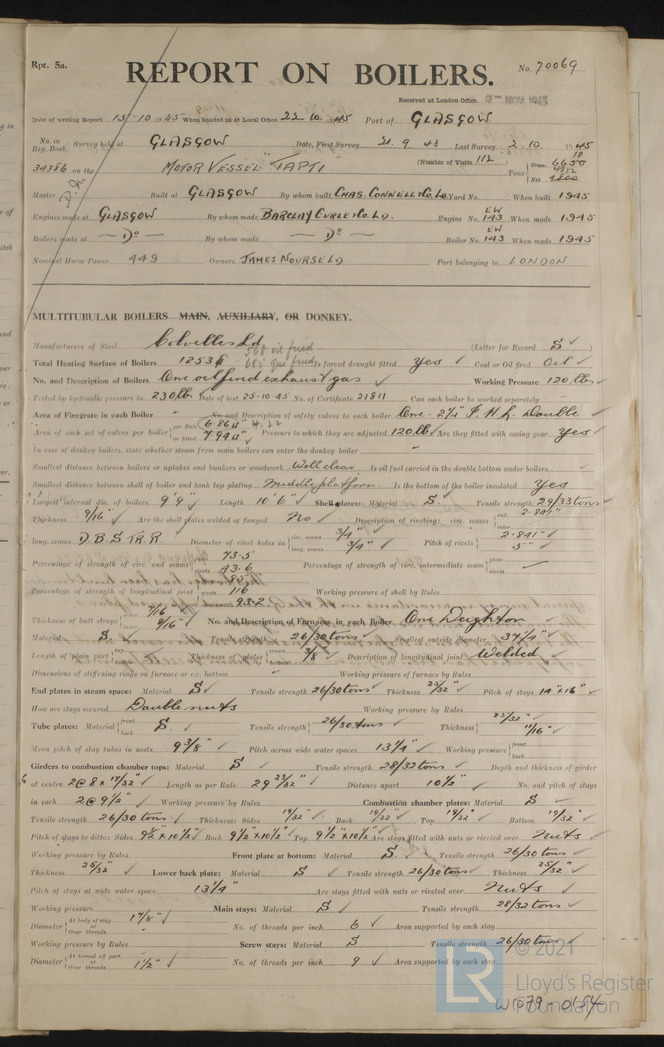 Rpt. 5a.
No. 70069
REPORT ON BOILERS.
Received at London Office NOV 1945
Date of writing Report 15-10 1945 When handed in at Local Office 22.10.45 Port of GLASGOW
No. in Reg. Book. Survey held at GLASGOW Date, First Survey 21.9.43 Last Survey 2.10. 1945
34386 on the MOTOR VESSEL "TAPTI" (Number of Visits 112) Tons Gross 6650 Net
Master Built at GLASGOW By whom built CHAS. CONNELL & CO. LD. Yard No. When built 1945
Engines made at GLASGOW By whom made BARCLAY CURLE & CO. LD. Engine No. EW 143 When made 1945
Boilers made at Do By whom made Do Boiler No. EW 143 When made 1945
Nominal Horse Power 449 Owners JAMES NOURSE LD Port belonging to LONDON
MULTITUBULAR BOILERS MAIN, AUXILIARY, OR DONKEY.
Manufacturers of Steel Colvilles Ld (Letter for Record S)
568 oil fired
Total Heating Surface of Boilers 1253 685 gas fired Is forced draught fitted Yes Coal or Oil fired Oil
No. and Description of Boilers One oil fired exhaust gas Working Pressure 120 lbs
Tested by hydraulic pressure to 230 lb Date of test 25-10-45 No. of Certificate 21811 Can each boiler be worked separately
Area of Firegrate in each Boiler " No. and Description of safety valves to each boiler One - 2¼" Double
Area of each set of valves per boiler per Rule 6.86 as fitted 7.94 Pressure to which they are adjusted 120 lb Are they fitted with easing gear Yes
In case of donkey boilers, state whether steam from main boilers can enter the donkey boiler
Smallest distance between boilers or uptakes and bunkers or woodwork Well clear Is oil fuel carried in the double bottom under boilers
Smallest distance between shell of boiler and tank top plating Middle platform Is the bottom of the boiler insulated Yes
Largest internal dia. of boilers 9'9" Length 10'6" Shell plates: Material S. Tensile strength 29/33 tons
Thickness 9/16" Are the shell plates welded or flanged No Description of riveting: circ. seams end 2.841" inter.
long. seams D.B.S TR.R Diameter of rivet holes in circ. seams 3/4" long. seams 3/4" Pitch of rivets 2.841" 5"
Percentage of strength of circ. end seams plate 73.5 rivets 43.6 Percentage of strength of circ. intermediate seam plate rivets
Percentage of strength of longitudinal joint plate 85 rivets 116 combined 93.2 Working pressure of shell by Rules
Thickness of butt straps 7/16 9/16" No. and Description of Furnaces in each Boiler One Deighton
Material S. Tensile strength 26/30 tons Smallest outside diameter 37¼"
Length of plain part top bottom Thickness of plates crown bottom 3/8" Description of longitudinal joint Welded
Dimensions of stiffening rings on furnace or c.c. bottom Working pressure of furnace by Rules
End plates in steam space: Material S Tensile strength 26/30 tons Thickness 25/32" Pitch of stays 14"x16"
How are stays secured Double nuts Working pressure by Rules
Tube plates: Material front back S. Tensile strength 26/30 tons Thickness 25/32" 11/16"
Mean pitch of stay tubes in nests 9 3/8" Pitch across wide water spaces 13¼" Working pressure front back
Girders to combustion chamber tops: Material S Tensile strength 28/32 tons Depth and thickness of girder
at centre 2@8 x 17/32" Length as per Rule 29 23/32" Distance apart 10½" No. and pitch of stays
in each 2@9½" Working pressure by Rules Combustion chamber plates: Material S
Tensile strength 26/30 tons Thickness: Sides 19/32" Back 19/32" Top 19/32" Bottom 19/32"
Pitch of stays to ditto: Sides 9½"x10½" Back 9½"x10½" Top 9½"x10½" Are stays fitted with nuts or riveted over Nuts
Working pressure by Rules Front plate at bottom: Material S. Tensile strength 26/30 tons
Thickness 25/32" Lower back plate: Material S Tensile strength 26/30 tons Thickness 25/32"
Pitch of stays at wide water space 13¼" Are stays fitted with nuts or riveted over Nuts
Working pressure Main stays: Material S Tensile strength 28/32 tons
Diameter At body of stay or Over threads 1 7/8" No. of threads per inch 6 Area supported by each stay
Working pressure by Rules Screw stays: Material S Tensile strength 26/30 tons
Diameter At turned off part or Over threads 1½" No. of threads per inch 9 Area supported by each stay
© 2021
LR Lloyd's Register Foundation
W1579-0154